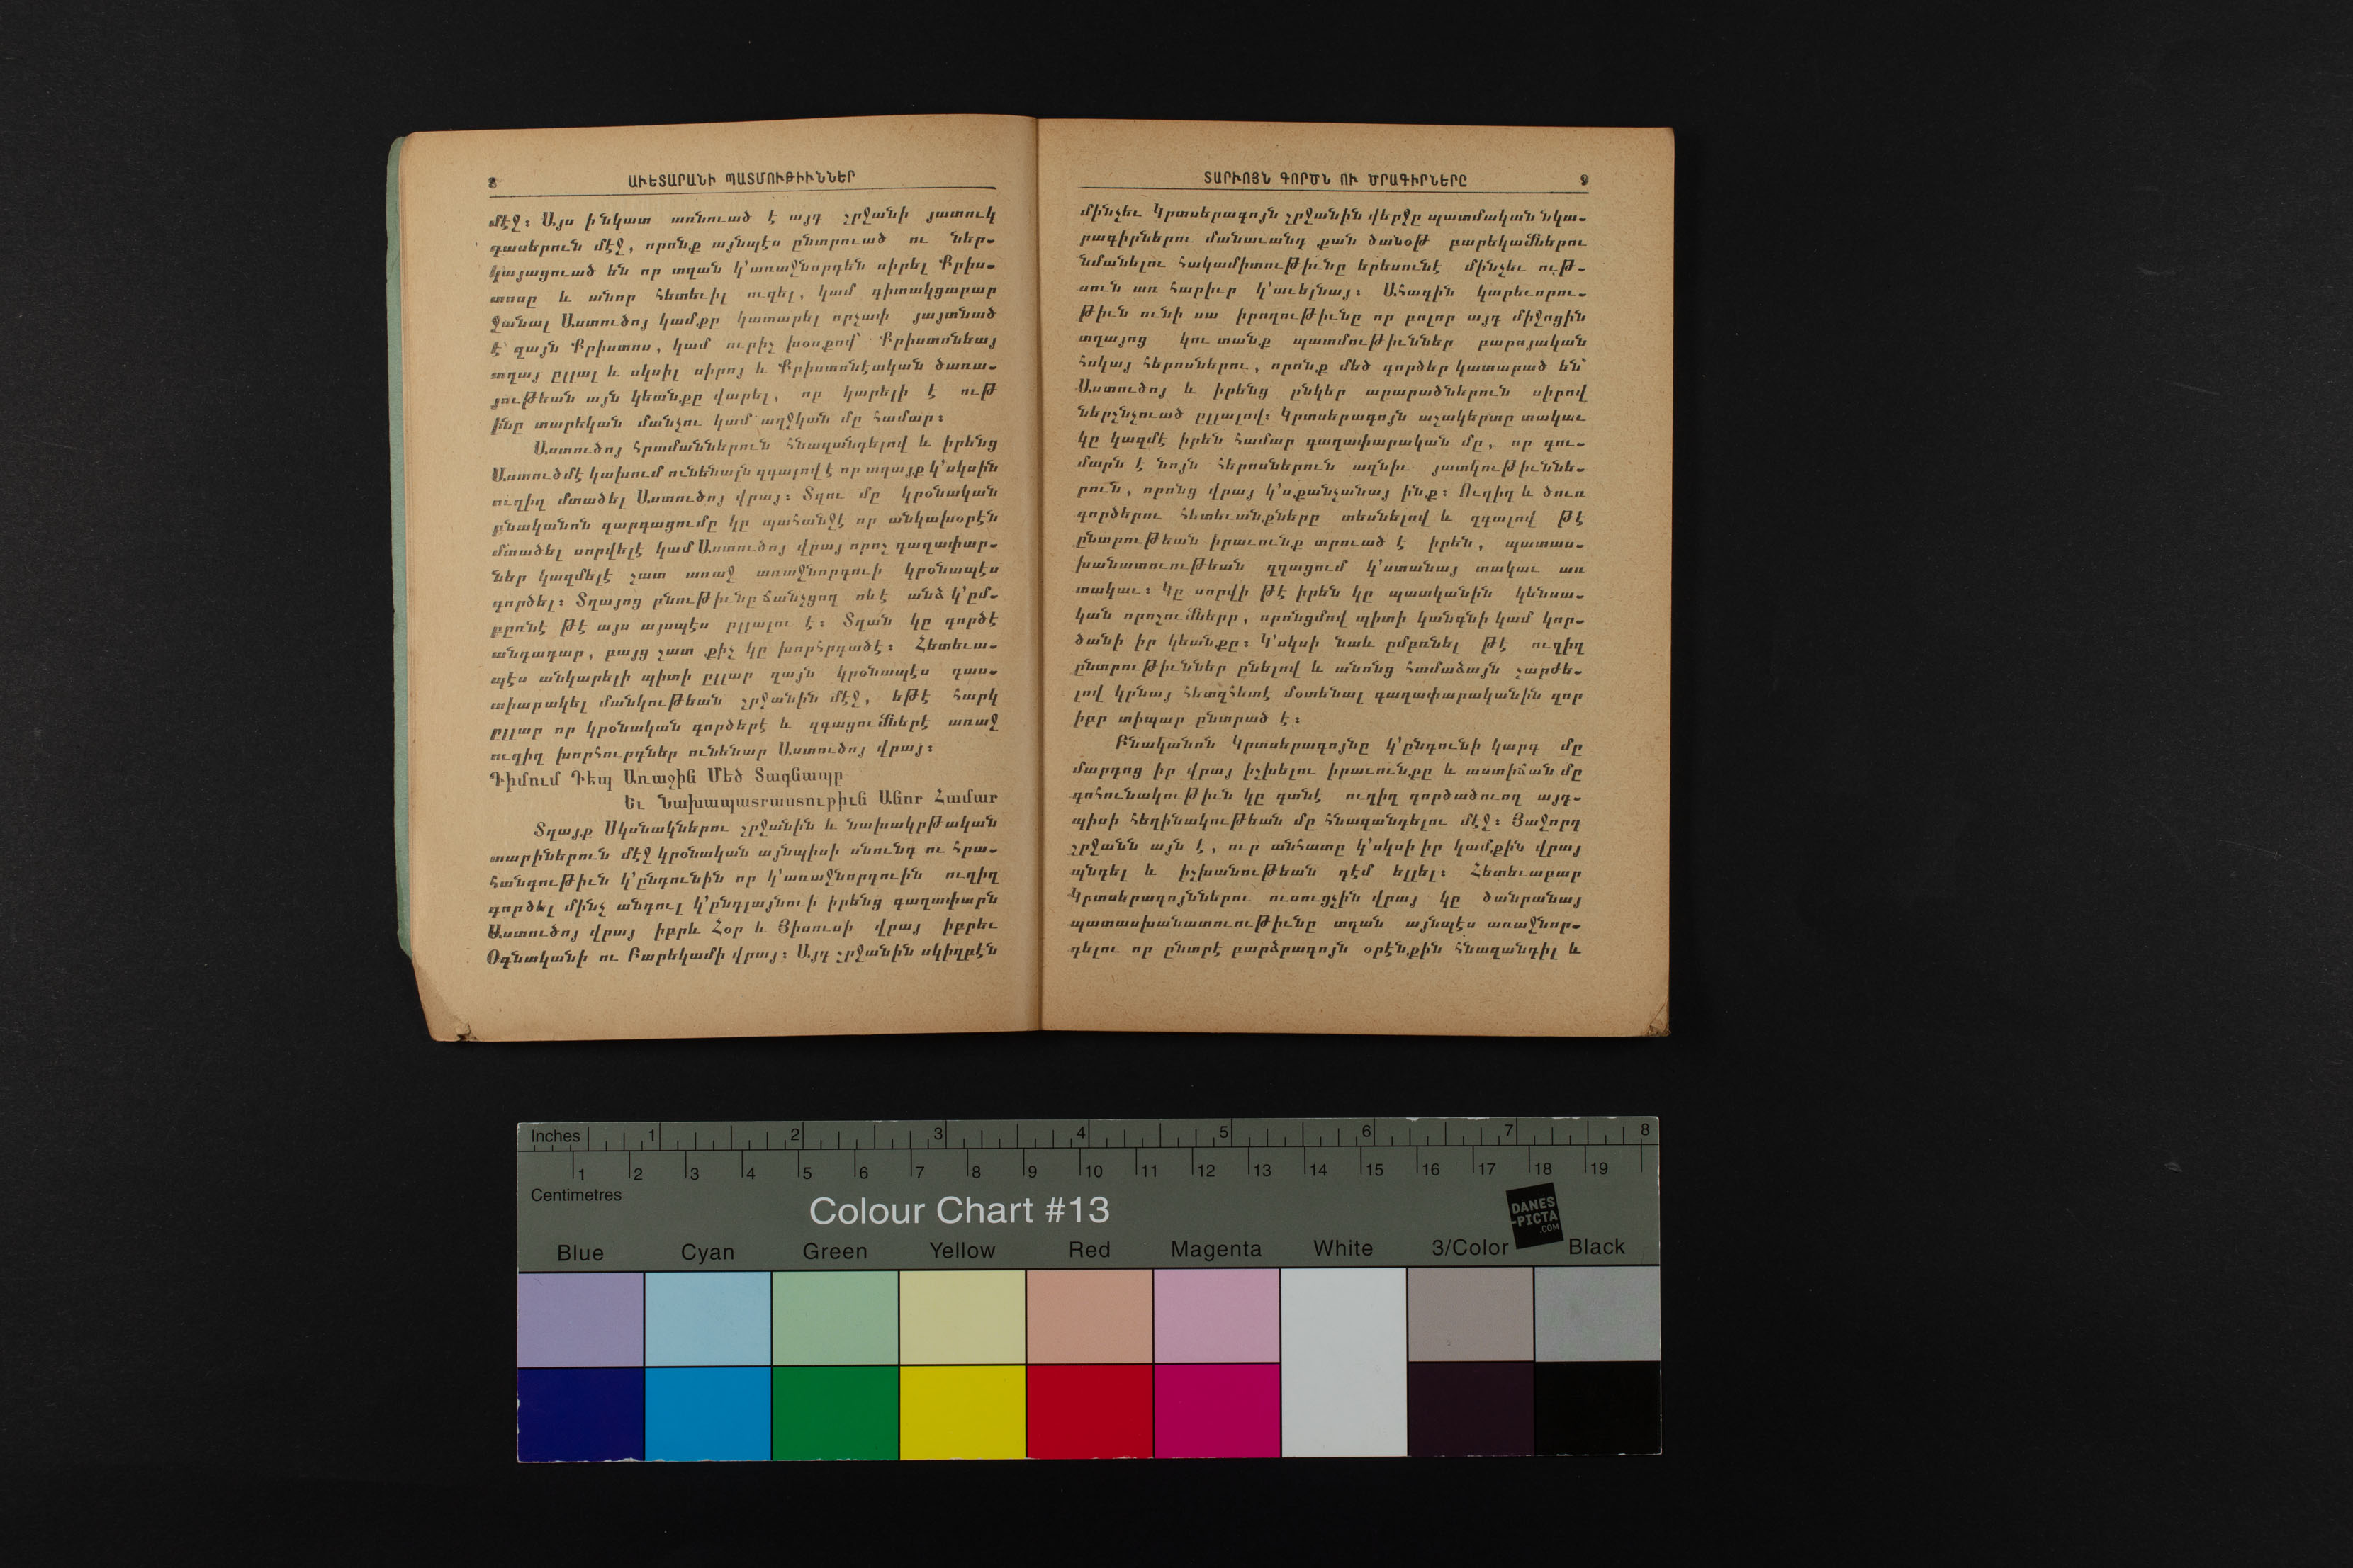 8 ԱՒԵՏԱՐԱՆԻ ՊԱՏՄՈՒԹԻՒՆՆԵՐ
մէջ։ Այս ինկատ առնուած է այդ շրջանի յատուկ
դասերուն մէջ, որոնք այնպէս ընտրուած ու ներ-
կայացուած են որ տղան կ՚առաջնորդեն սիրել Քրիս-
տոսը և անոր հետեւիլ ուզել, կամ գիտակցաբար
ջանալ Աստուծոյ կամքը կատարել որչափ յայտնած
է զայն Քրիստոս, կամ ուրիշ խօսքով Քրիստոնեայ
տղայ ըլլալ և սկսիլ սիրոյ և Քրիստոնէական ծառա-
յութեան այն կեանքը վարել, որ կարելի է ութ
ինը տարեկան մանչու կամ աղջկան մը համար։
Աստուծոյ հրամաններուն հնազանդելով և իրենց
Աստուծմէ կախում ունենալն զգալով է որ տղայք կ՚սկսին
ուղիղ մտածել Աստուծոյ վրայ։ Տղու մը կրօնական
բնականոն զարգացումը կը պահանջէ որ անկախօրէն
մտածել սորվելէ կամ Աստուծոյ վրայ որոշ գաղափար-
ներ կազմելէ շատ առաջ առաջնորդուի կրօնապէս
գործել։ Տղայոց բնութիւնը ճանչցող ոևէ անձ կ՚ըմ-
բռնէ թէ այս այսպէս ըլլալու է։ Տղան կը գործէ
անդադար, բայց շատ քիչ կը խորհրդածէ։ Հետեւա-
պէս անկարելի պիտի ըլլար զայն կրօնապէս դաս-
տիարակել մանկութեան շրջանին մէջ, եթէ հարկ
ըլլար որ կրօնական գործերէ և զգացումներէ առաջ
ուղիղ խորհուրդներ ունենար Աստուծոյ վրայ։
Դիմում Դէպ Առաջին Մեծ Տագնապը
Եւ Նախապատրաստութիւն Անոր Համար
Տղայք Սկսնակներու շրջանին և նախակրթական
տարիներուն մէջ կրօնական այնպիսի սնունդ ու հրա-
հանգութիւն կ՚ընդունին որ կ՚առաջնորդուին ուղիղ
գործել մինչ անդուլ կ՚ընդլայնուի իրենց գաղափարն
Աստուծոյ վրայ իբրև Հօր և Յիսուսի վրայ իբրեւ
Օգնականի ու Բարեկամի վրայ։ Այդ շրջանին սկիզբէն
ՏԱՐՒՈՅՆ ԳՈՐԾՆ ՈՒ ԾՐԱԳԻՐՆԵՐԸ 9
մինչեւ Կրտսերագոյն շրջանին վերջը պատմական նկա-
րագիրներու մանաւանդ քան ծանօթ բարեկամներու
նմանելու հակամիտութիւնը երեսունէ մինչեւ ութ-
սուն առ հարիւր կ՚աւելնայ։ Ահագին կարեւորու-
թիւն ունի սա իրողութիւնը որ բոլոր այդ միջոցին
տղայոց կու տանք պատմութիւններ բարոյական
հսկայ հերոսներու, որոնք մեծ գործեր կատարած են՝
Աստուծոյ և իրենց ընկեր արարածներուն սիրով
ներշնչուած ըլլալով։ Կրտսերագոյն աշակերտը տակաւ
կը կազմէ իրեն համար գաղափարական մը, որ գու-
մարն է նոյն հերոսներուն ազնիւ յատկութիւննե-
րուն, որոնց վրայ կ՚սքանչանայ ինք։ Ուղիղ և ծուռ
գործերու հետեւանքները տեսնելով և զգալով թէ
ընտրութեան իրաւունք տրուած է իրեն, պատաս-
խանատուութեան զգացում կ՚ստանայ տակաւ առ
տակաւ։ Կը սորվի թէ իրեն կը պատկանին կենսա-
կան որոշումները, որոնցմով պիտի կանգնի կամ կոր-
ծանի իր կեանքը։ Կ՚սկսի նաև ըմբռնել թէ ուղիղ
ընտրութիւններ ընելով և անոնց համաձայն շարժե-
լով կրնայ հետզհետէ մօտենալ գաղափարականին զոր
իբր տիպար ընտրած է։
Բնականոն Կրտսերագոյնը կ՚ընդունի կարգ մը
մարդոց իր վրայ իշխելու իրաւունքը և աստիճան մը
գոհունակութիւն կը գտնէ ուղիղ գործածուող այդ-
պիսի հեղինակութեան մը հնազանդելու մէջ։ Յաջորդ
շրջանն այն է, ուր անհատը կ՚սկսի իր կամքին վրայ
պնդել և իշխանութեան դէմ ելլել։ Հետեւաբար
Կրտսերագոյններու ուսուցչին վրայ կը ծանրանայ
պատասխանատուութիւնը տղան այնպէս առաջնոր-
դելու որ ընտրէ բարձրագոյն օրէնքին հնազանդիլ և
Inches 1 2 3 4 5 6 7 8
1 2 3 4 5 6 7 8 9 10 11 12 13 14 15 16 17 18 19
Centimetres
Colour Chart #13
DANES
-PICTA
.COM
Blue Cyan Green Yellow Red Magenta White 3/Color Black